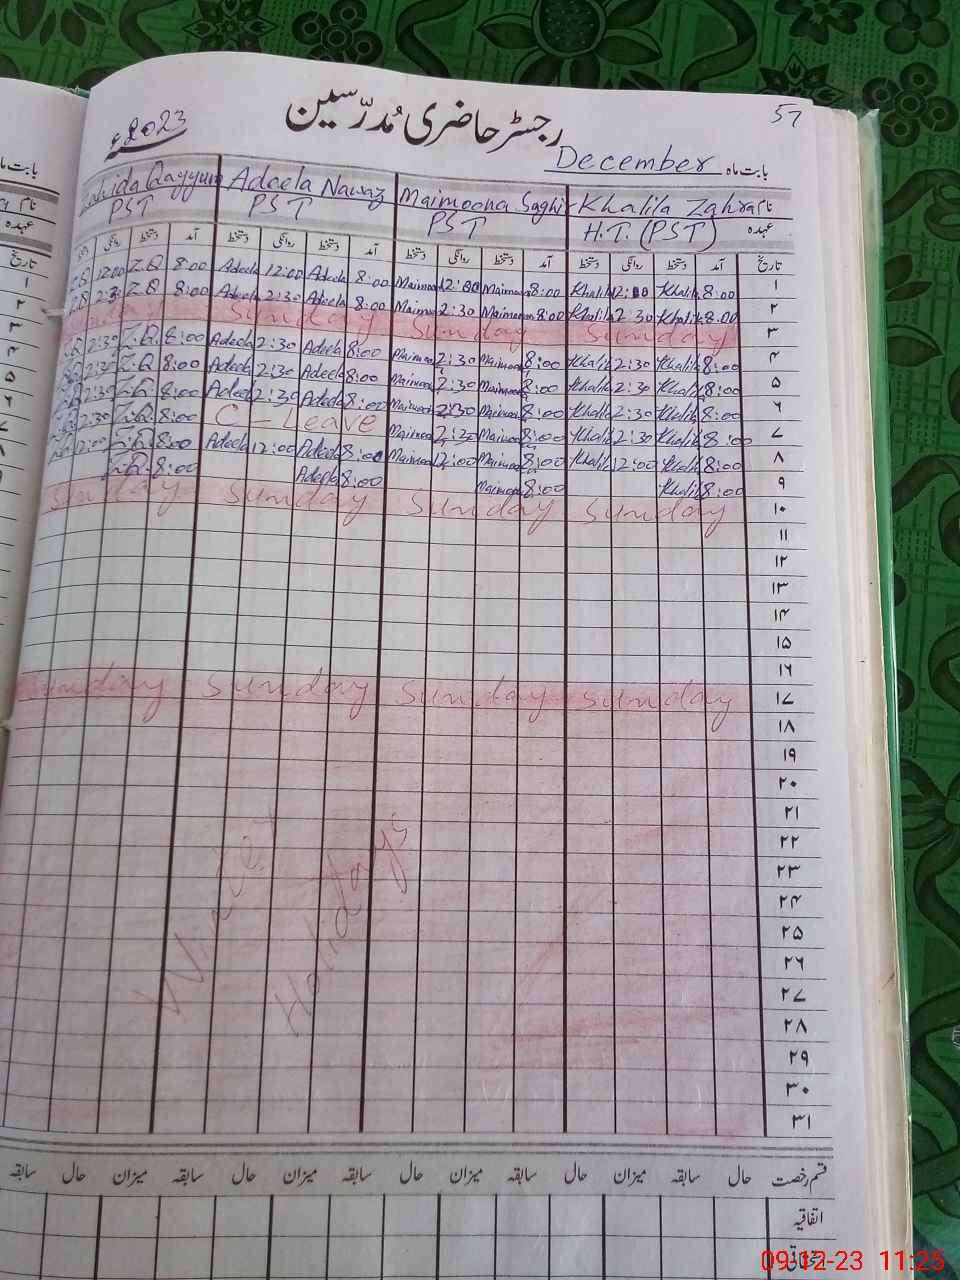 57
رجسٹر حاضری مُدرّسین
2023ء
بابت ماہ December
نام Khalila Zahra Maimoona Saghi Adeela Nawaz Zahida Qayyum
عہدہ H.T. (PST) PST PST PST
تاریخ آمد دستخط روانگی دستخط آمد دستخط روانگی دستخط آمد دستخط روانگی دستخط آمد دستخط روانگی
۱ 8:00 Khalil 12:00 Khalil 8:00 Maimoo 12:00 Maimoo 8:00 Adeela 12:00 Adeela 8:00 Z.Q 12:00
۲ 8:00 Khalil 2:30 Khalil 8:00 Maimoo 2:30 Maimoo 8:00 Adeela 2:30 Adeela 8:00 Z.Q 2:30
۳ Sunday Sunday Sunday
۴ 8:00 Khalil 2:30 Khalil 8:00 Maimoo 2:30 Maimoo 8:00 Adeela 2:30 Adeela 8:00 Z.Q 2:30
۵ 8:00 Khalil 2:30 Khalil 8:00 Maimoo 2:30 Maimoo 8:00 Adeela 2:30 Adeela 8:00 Z.Q 2:30
۶ 8:00 Khalil 2:30 Khalil 8:00 Maimoo 2:30 Maimoo 8:00 Adeela 2:30 Adeela 8:00 Z.Q 2:30
۷ 8:00 Khalil 2:30 Khalil 8:00 Maimoo 2:30 Maimoo C - Leave 8:00 Z.Q 2:30
۸ 8:00 Khalil 12:00 Khalil 8:00 Maimoo 12:00 Maimoo 8:00 Adeela 12:00 Adeela 8:00 Z.Q 12:00
۹ 8:00 Khalil 8:00 Maimoo 8:00 Adeela 8:00 Z.Q
۱۰ Sunday Sunday Sunday Sunday
۱۱
۱۲
۱۳
۱۴
۱۵
۱۶
۱۷ Sunday Sunday Sunday Sunday
۱۸
۱۹
۲۰
۲۱
۲۲
۲۳
۲۴
۲۵
۲۶
۲۷
۲۸
۲۹
۳۰
۳۱
Winter
Holidays
قسم رخصت حال سابقہ میزان حال سابقہ میزان حال سابقہ میزان حال سابقہ
اتفاقیہ
09-12-23 11:25